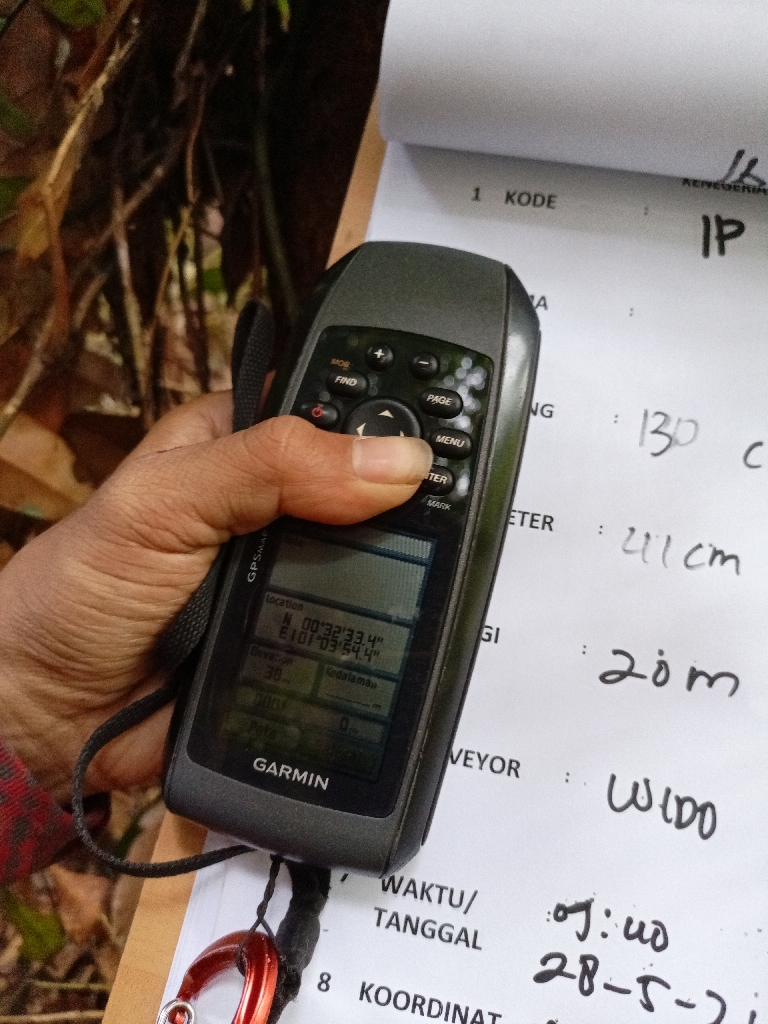 KENEGERIA
1 KODE :
IP
MA :
NG : 130 c
ETER : 41 cm
GI : 20 m
VEYOR : WIDO
WAKTU/
TANGGAL
28-5-2
8 KOORDINAT
MOB
FIND
PAGE
MENU
NTER
MARK
GPSMA
Location
N 00°32'33.4"
E101°03'54.4"
Elevation
30 m
Kedalaman
m
0 m
GARMIN